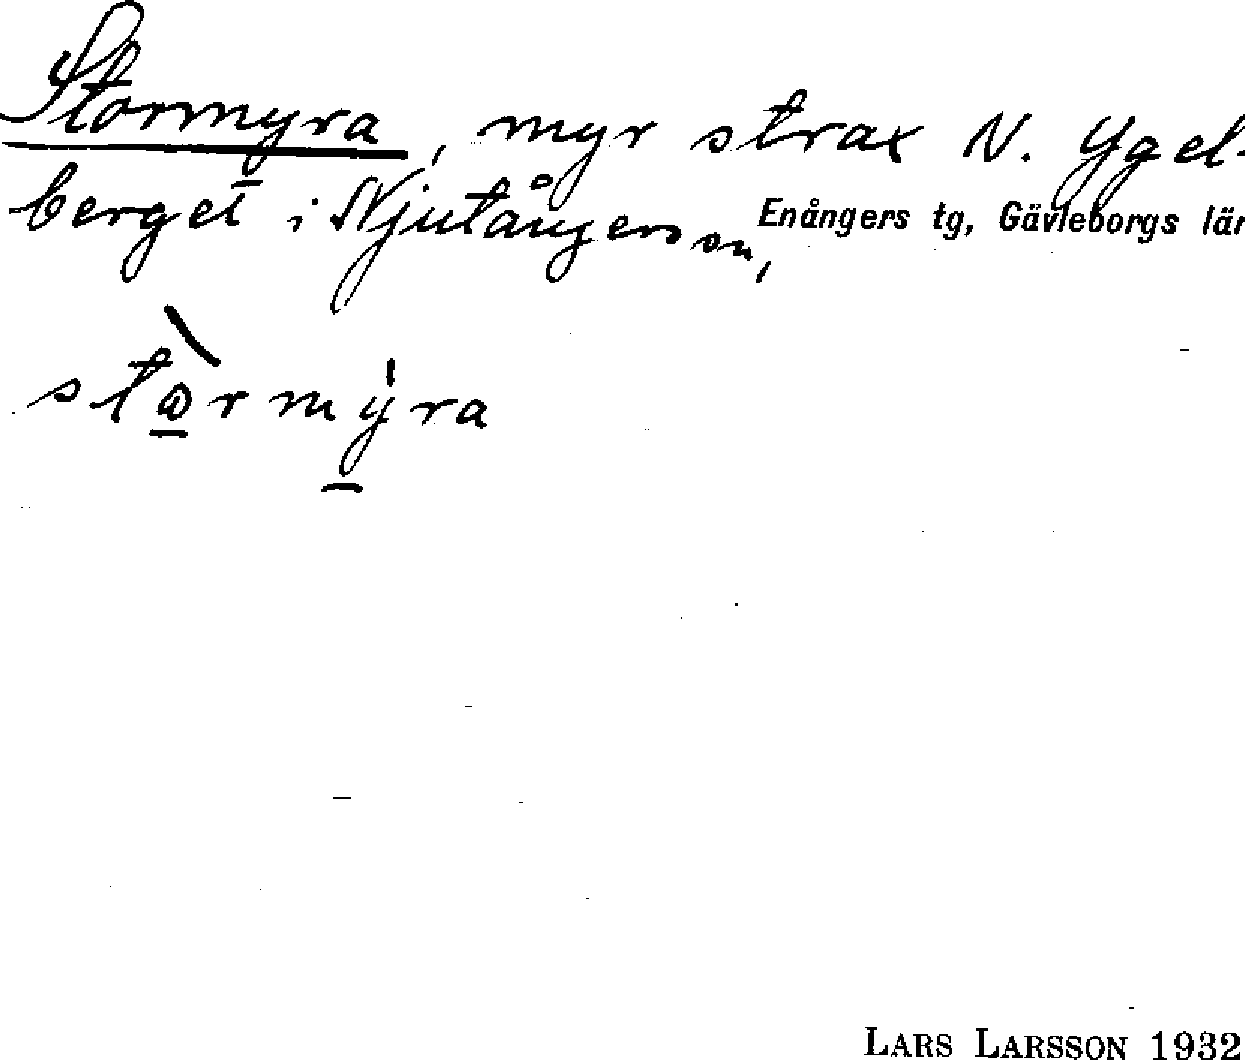 Stormyra, myr strax N. Ygel-
berget i Njutångers sn, Enångers tg, Gävleborgs län
stòrmýra
LARS LARSSON 1932